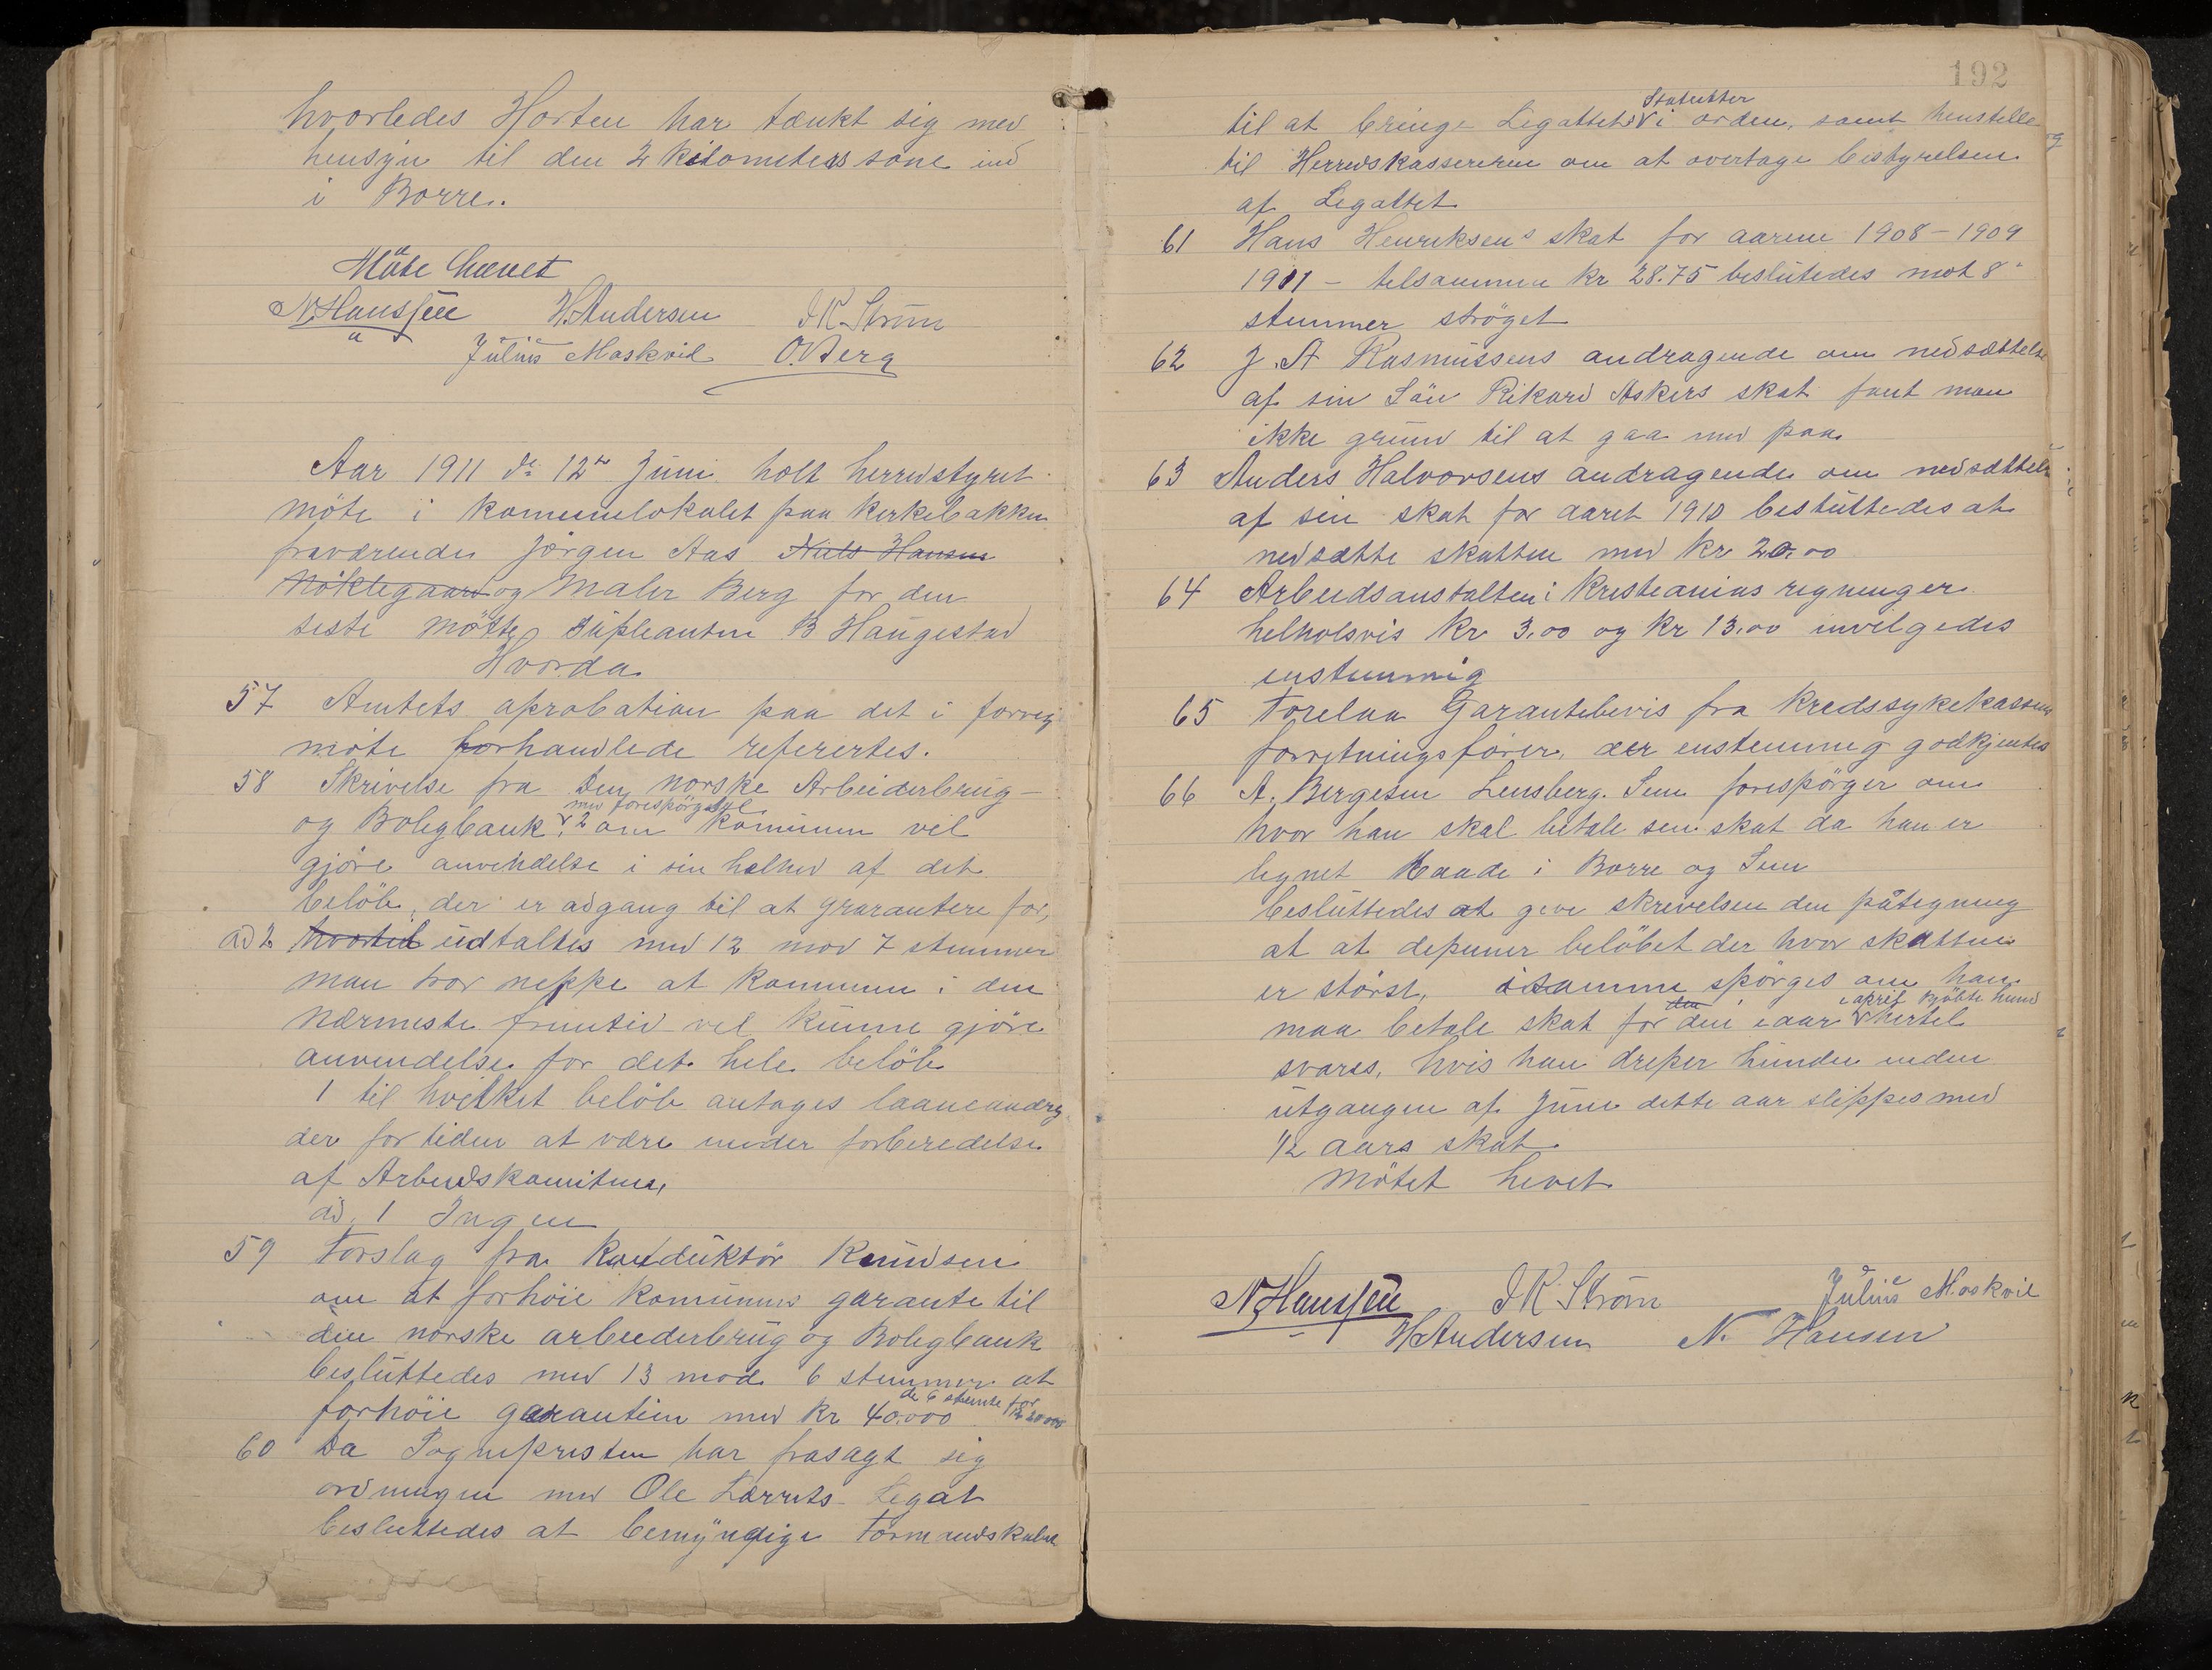 hvorledes Horten har tænkt sig med
hensyn til den 2 kilometers sone ind
i Borre.
Møte hævet
N. Hanssen H. Andersen J K. Strøm
Julius Moskvil O. Berg
Aar 1911 dn 12te Juni holt herredstyret
möte i komunelokalet paa Kirkebakken
fraværende Jørgen Aas Niels Hansen
Nöklegaard og Maler Berg for den
siste mötte Supleanten B Haugestad
Hvorda
57 Amtets aprobation paa det i forrige
möte forhandlede refertes.
58 Skrivelse fra Den norske Arbeiderbrug-
og Boligbank med forespörgsel 2 om komunen vil
gjöre anvendelse i sin helhed af det
belöb, der er adgang til at grarantere for,
ad 2 hvortil udtaltes med 12 mod 7 stemmer
man tror neppe at kommunen i den
nærmeste fremtid vil kunne gjöre
anvendelse for det hele belöb
1 til hvilket belöb antages laaneandrag
der for tiden at være under forberedelse
af Arbeidskomiteen,
ad. 1 Ingen
59 Forslag fra Konduktör Knudsen
om at forhöie komunens garanti til
den norske arbeiderbrug og Boligbank
besluttedes med 13 mod 6 stemmer at
forhöie garantien med kr 40.000 de 6 stemte for kr 20 000
60 Da Sognepresten har frasagt sig
ordningen med Ole Legat
besluttedes at bemyndige Formandskabet
192
til at bringe Legattets Statutter i orden, samt henstelle
til Herredskassereren om at overtage bestyrelsen
af Legattet
61 Hans Henriksens skat for aarene 1908-1909
1911 - tilsammen kr 28.75 beslutedes mot 8
stemmer ströget
62 J. A Rasmussens andragende om nedsættelse
af sin Sön Rikard Askers skat fant man
ikke grund til at gaa med paa
63 Anders Halvorsens andragende om nedsættelse
af sin skat for aaret 1910 besluttedes at
nedsætte skatten med kr 20.00
64 Arbeidsanstalten i Kristianias regninger
helholsvis kr 3.00 og kr 13.00 invilgedes
enstemmig
65 Forelaa Garantibevis fra Kredssykekassens
forretningsförer, der enstemmig godkjentes
66 A. Bergesen Lensberg. Sem forespörger om
hvor han skal betale sin skat da han er
lignet baade i Borre og Sem
besluttedes at give skrivelsen den påtegning
at at deponer belöbet der hvor skatten
er störst, isamme spörges om han
maa betale skat for den den i aar i april kjöbte hund hertil
svares, hvis han dreper hunden inden
utgangen af Juni dette aar slippes med
1/2 aars skat
Mötet hevet
N. Hanssen J K Strøm Julius Moskvil
H Andersen N. Hansen